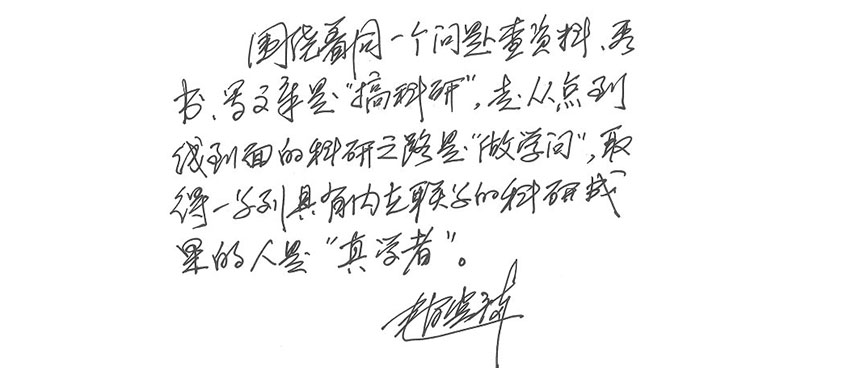 围绕着同一个问题查资料、看
书、写文章是“搞科研”，走从点到
线到面的科研之路是“做学问”，取
得一系列具有内在联系的科研成
果的人是“真学者”。